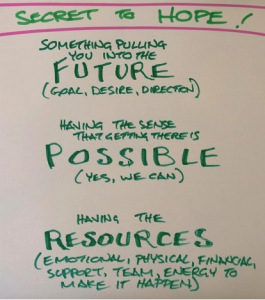 SECRET TO HOPE!
SOMETHING PULLING
YOU INTO THE
FUTURE
(GOAL, DESIRE, DIRECTION)
HAVING THE SENSE
THAT GETTING THERE IS
POSSIBLE
(YES, WE CAN)
HAVING THE
RESOURCES
(EMOTIONAL, PHYSICAL, FINANCIAL,
SUPPORT, TEAM, ENERGY TO
MAKE IT HAPPEN)